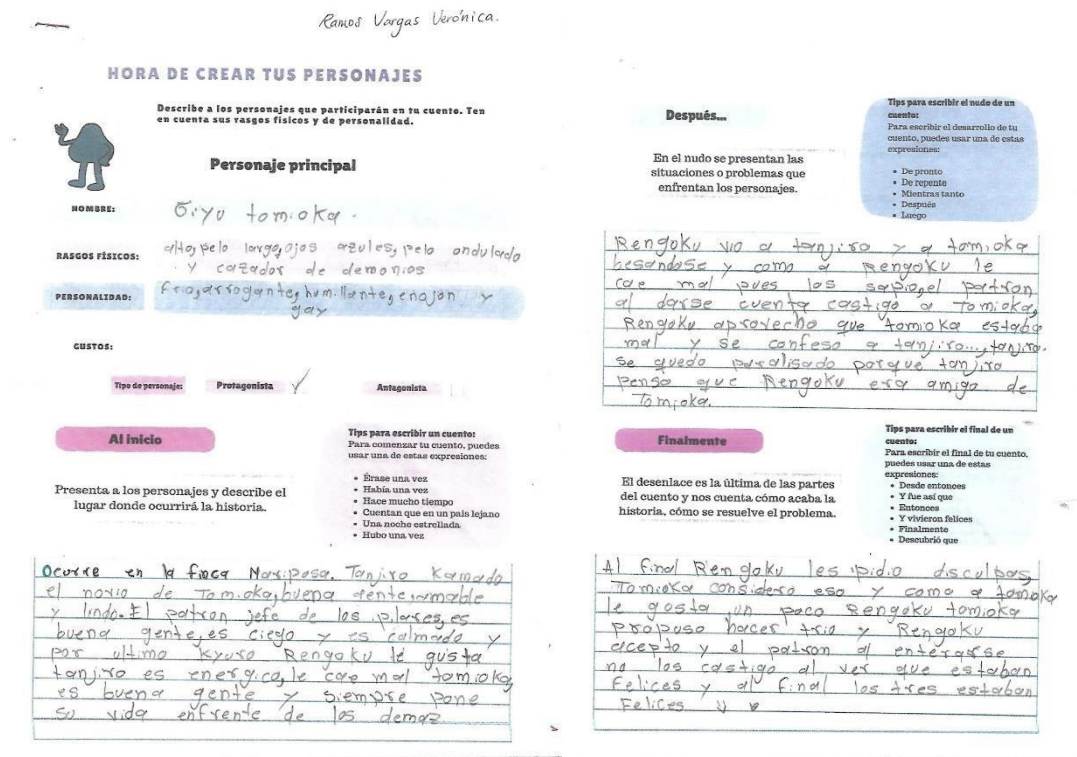 Ramos Vargas Verónica.
HORA DE CREAR TUS PERSONAJES
Describe a los personajes que participarán en tu cuento. Ten
en cuenta sus rasgos físicos y de personalidad.
Personaje principal
NOMBRE:
Giyu tomioka.
RASGOS FÍSICOS:
alto, pelo largo, ojos azules, pelo ondulado
y cazador de demonios
PERSONALIDAD:
frio, arrogante, humillante, enojon y
gay
GUSTOS:
Tipo de personaje:
Protagonista ✓
Antagonista
Al inicio
Presenta a los personajes y describe el
lugar donde ocurrirá la historia.
Tips para escribir un cuento:
Para comenzar tu cuento, puedes
usar una de estas expresiones:
• Érase una vez
• Había una vez
• Hace mucho tiempo
• Cuentan que en un país lejano
• Una noche estrellada
• Hubo una vez
Ocurre en la finca Mariposa. Tanjiro Kamado
el novio de Tomioka, buena gente, amable
y lindo. El patron jefe de los pilares, es
buena gente, es ciego y es calmado y
por ultimo Kyuro Rengoku le gusta
tanjiro es energico, le cae mal tomioka,
es buena gente y siempre pone
su vida enfrente de los demaz
Después...
En el nudo se presentan las
situaciones o problemas que
enfrentan los personajes.
Tips para escribir el nudo de un
cuento:
Para escribir el desarrollo de tu
cuento, puedes usar una de estas
expresiones:
• De pronto
• De repente
• Mientras tanto
• Después
• Luego
Rengoku vio a tanjiro y a tomioka
besandose y como a Rengoku le
cae mal pues los sapio, el patron
al darse cuenta castigo a Tomioka,
Rengoku aprovecho que tomioka estaba
mal y se confeso a tanjiro..., tanjiro.
se quedo paralisado porque tanjiro
penso que Rengoku era amigo de
Tomioka.
Finalmente
El desenlace es la última de las partes
del cuento y nos cuenta cómo acaba la
historia, cómo se resuelve el problema.
Tips para escribir el final de un
cuento:
Para escribir el final de tu cuento,
puedes usar una de estas
expresiones:
• Desde entonces
• Y fue así que
• Entonces
• Y vivieron felices
• Finalmente
• Descubrió que
Al final Rengoku les pidio disculpas,
Tomioka considero eso y como a tomioka
le gusta un poco Rengoku tomioka
propuso hacer trio y Rengoku
acepto y el patron al enterarse
no los castigo al ver que estaban
Felices y al final los tres estaban
Felices